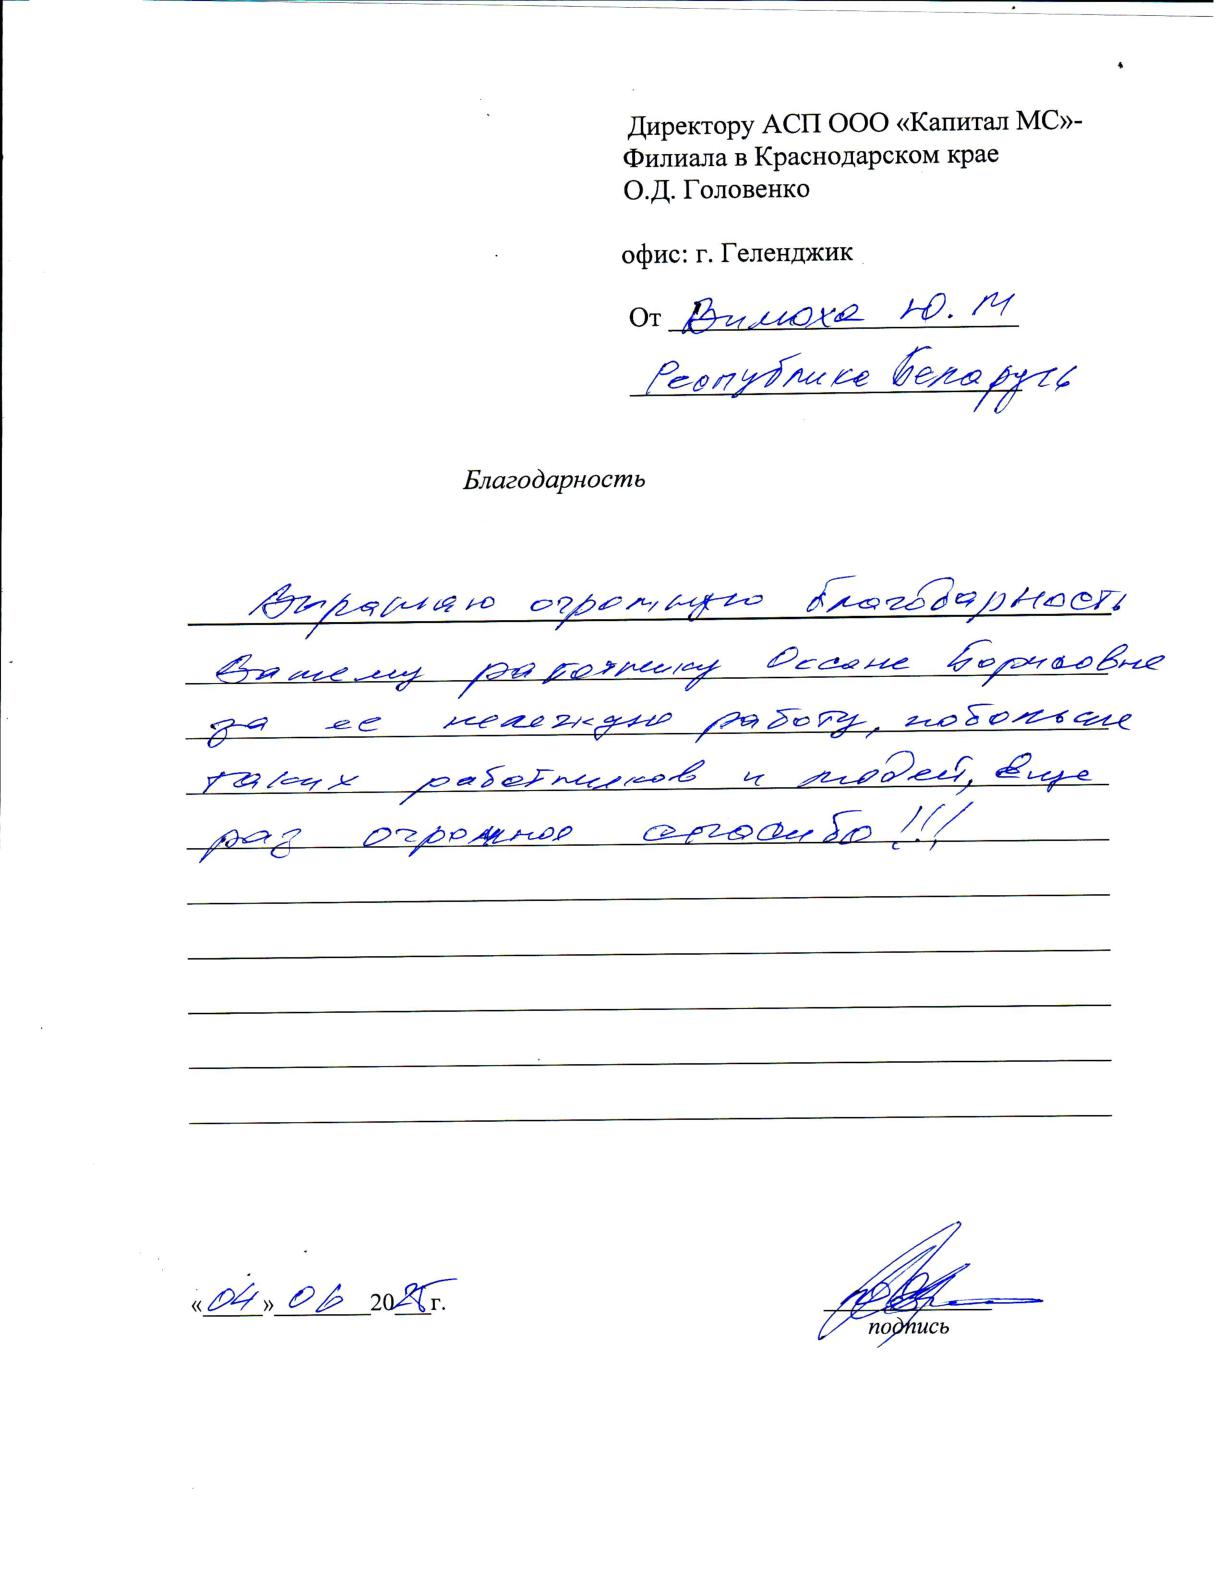 Директору АСП ООО «Капитал МС»-
Филиала в Краснодарском крае
О.Д. Головенко
офис: г. Геленджик
От Вимоха Ю. М
Республика Беларусь
Благодарность
Выражаю огромную благодарность
Вашему работнику Оксане Борисовне
за ее нелегкую работу, побольше
таких работников и людей, еще
раз огромное спасибо!!!
«04» 06 2025г.
подпись